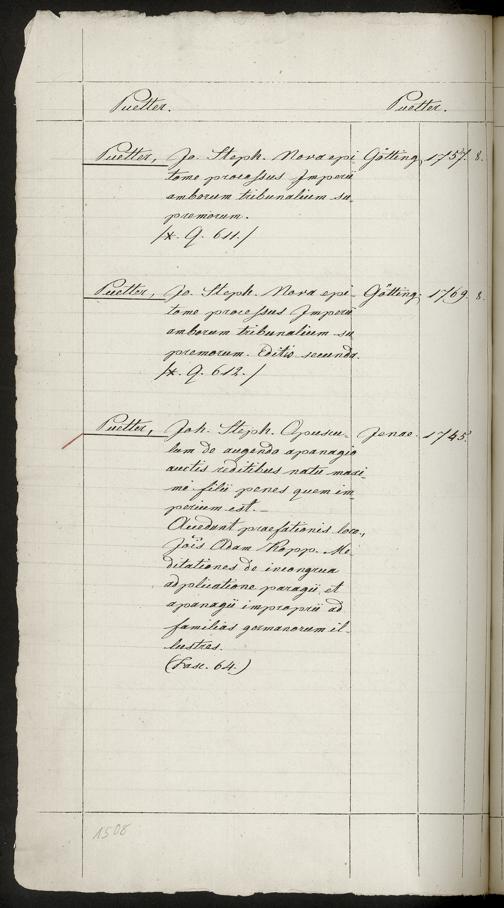 Puetter. Puetter.
Puetter, Jo. Steph. Nova epi- Götting. 1757. 8.
tome processus Imperii
amborum tribunalium su-
premorum.
/x. Q. 611./
Puetter, Jo. Steph. Nova epi- Götting. 1769. 8.
tome processus Imperii
amborum tribunalium su-
premorum. Editio secunda.
/x. Q. 612./
Puetter, Joh. Steph. Opuscu- Jenae. 1745.
lum de augendo apanagio
auctis reditibus natu maxi-
mi filii penes quem im-
perium est.-
Accedunt praefationis loco,
Jois Adam Kopp. Me-
ditationes de incongrua
adplicatione paragii et
apanagii improprii ad
familias germanorum il-
lustres.
(Fasc. 64.)
1508